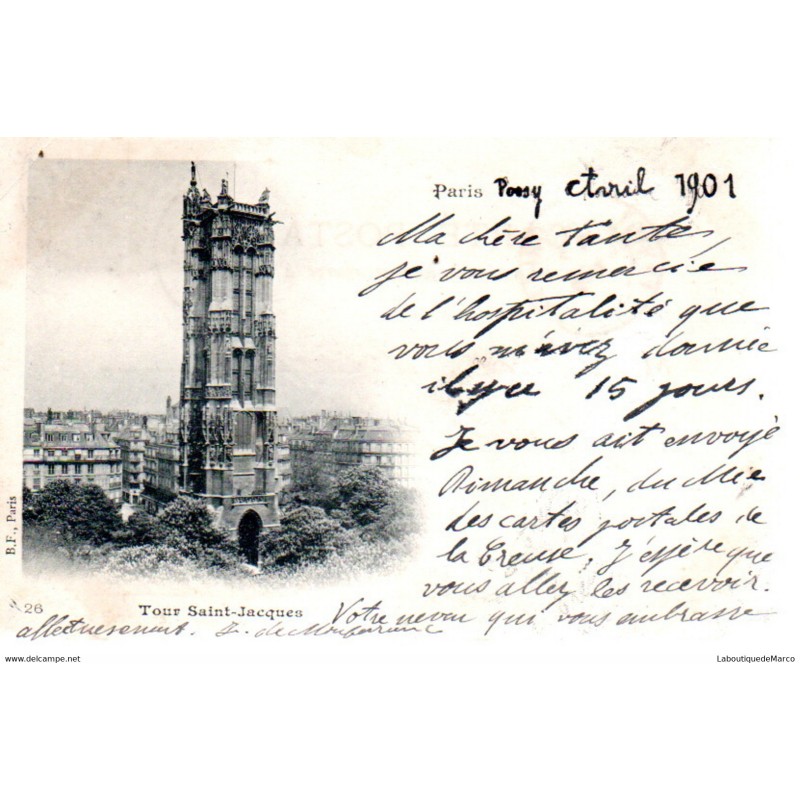 Paris Poissy Avril 1901
Ma chère Tante,
je vous remercie
de l'hospitalité que
vous m'avez donnée
il y a 15 jours.
Je vous ait envoyé
Dimanche, du Mée
des cartes postales de
la Creuse, J'espère que
vous allez les recevoir.
Votre neveu qui vous embrasse
affectuesement.
B.F., Paris
26 Tour Saint-Jacques
www.delcampe.net
LaboutiquedeMarco